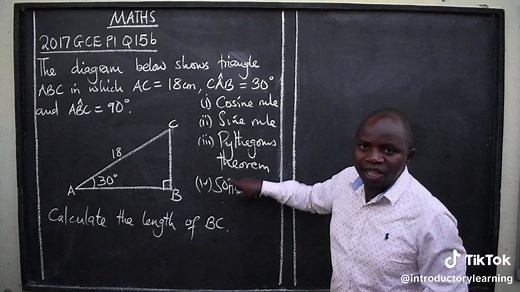 MATHS
2017 GCE P1 Q15b
The diagram below shows triangle
ABC in which AC = 18cm, CÂB = 30°
and AB̂C = 90°.
(i) Cosine rule
(ii) Sine rule
(iii) Pythegoras
theorem
(iv)
C
18
30°
A
B
Calculate the length of BC.
TikTok
@introductorylearning